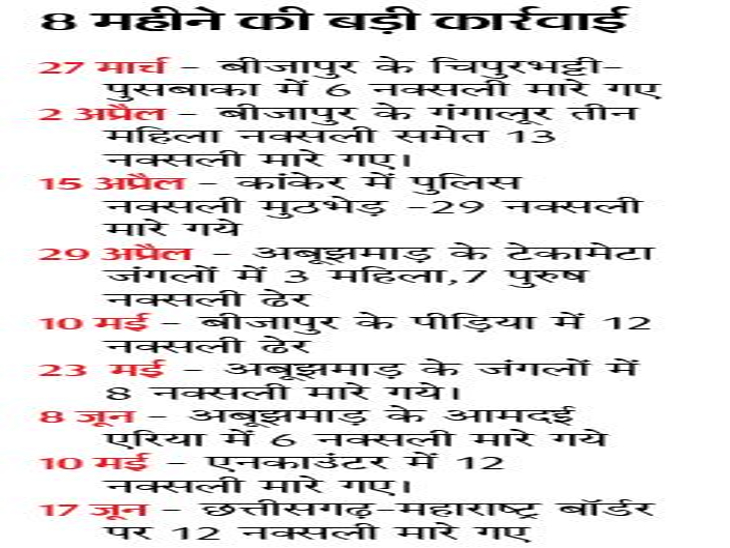 8 महीने की बड़ी कार्रवाई
27 मार्च - बीजापुर के चिपुरभट्टी-
पुसबाका में 6 नक्सली मारे गए
2 अप्रैल - बीजापुर के गंगालूर तीन
महिला नक्सली समेत 13
नक्सली मारे गए।
15 अप्रैल - कांकेर में पुलिस
नक्सली मुठभेड़ -29 नक्सली
मारे गये
29 अप्रैल - अबूझमाड़ के टेकामेटा
जंगलों में 3 महिला,7 पुरुष
नक्सली ढेर
10 मई - बीजापुर के पीड़िया में 12
नक्सली ढेर
23 मई - अबूझमाड़ के जंगलों में
8 नक्सली मारे गये।
8 जून - अबूझमाड़ के आमदई
एरिया में 6 नक्सली मारे गये
10 मई - एनकाउंटर में 12
नक्सली मारे गए।
17 जून - छत्तीसगढ़-महाराष्ट्र बॉर्डर
पर 12 नक्सली मारे गए